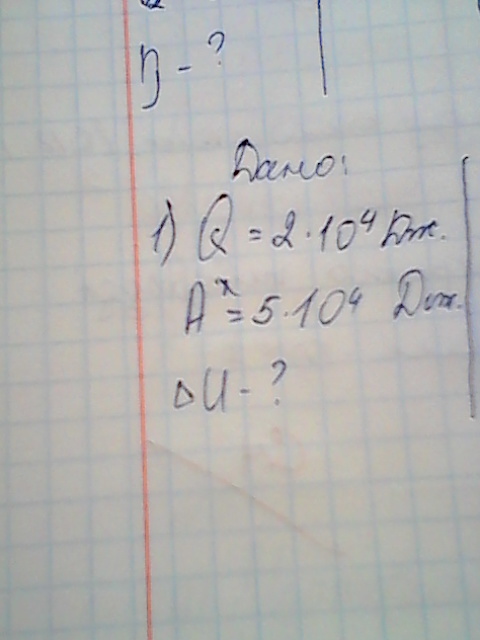 η - ?
Дано:
1) Q = 2·10⁴ Дж.
Aˣ = 5·10⁴ Дж.
ΔU - ?